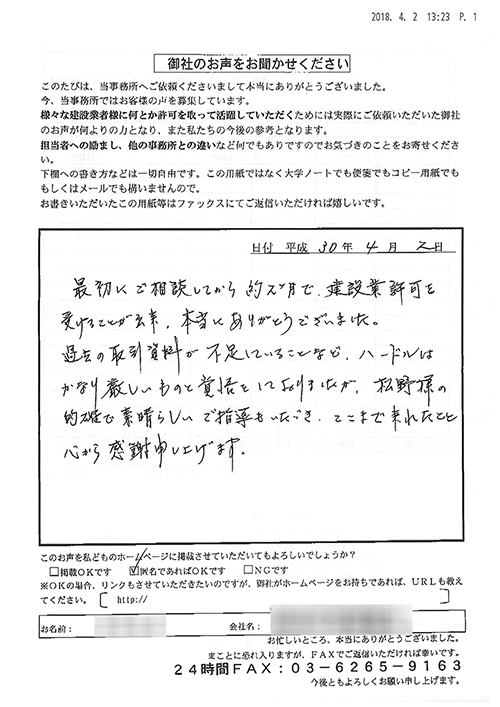 2018. 4. 2 13:23 P. 1
御社のお声をお聞かせください
このたびは、当事務所へご依頼くださいまして本当にありがとうございました。
今、当事務所ではお客様の声を募集しています。
様々な建設業者様に何とか許可を取って活躍していただくためには実際にご依頼いただいた御社
のお声が何よりの力となり、また私たちの今後の参考となります。
担当者への励まし、他の事務所との違いなど何でもありですのでお気づきのことをお寄せくださ
い。
下欄への書き方などは一切自由です。この用紙ではなく大学ノートでも便箋でもコピー用紙でも
もしくはメールでも構いませんので。
お書きいただいたこの用紙等はファックスにてご返信いただければ嬉しいです。
日付 平成 30 年 4 月 2 日
最初にご相談してから約2ヶ月で、建設業許可を
受けることが出来、本当にありがとうございました。
過去の取引資料が不足していることなど、ハードルは
かなり厳しいものと覚悟をしておりましたが、松野様の
的確で素晴らしいご指導をいただき、ここまで来れたこと
心から感謝申し上げます。
このお声を私どものホームページに掲載させていただいてもよろしいでしょうか？
□掲載OKです ☑匿名であればOKです □NGです
※OKの場合、リンクもさせていただきたいのですが、御社がホームページをお持ちであれば、URLも教え
てください。 〔 http:// 〕
お名前： 会社名：
お忙しいところ、本当にありがとうございました。
まことに恐れ入りますが、FAXでご返信いただければ幸いです。
24時間FAX：03-6265-9163
今後ともよろしくお願い申し上げます。